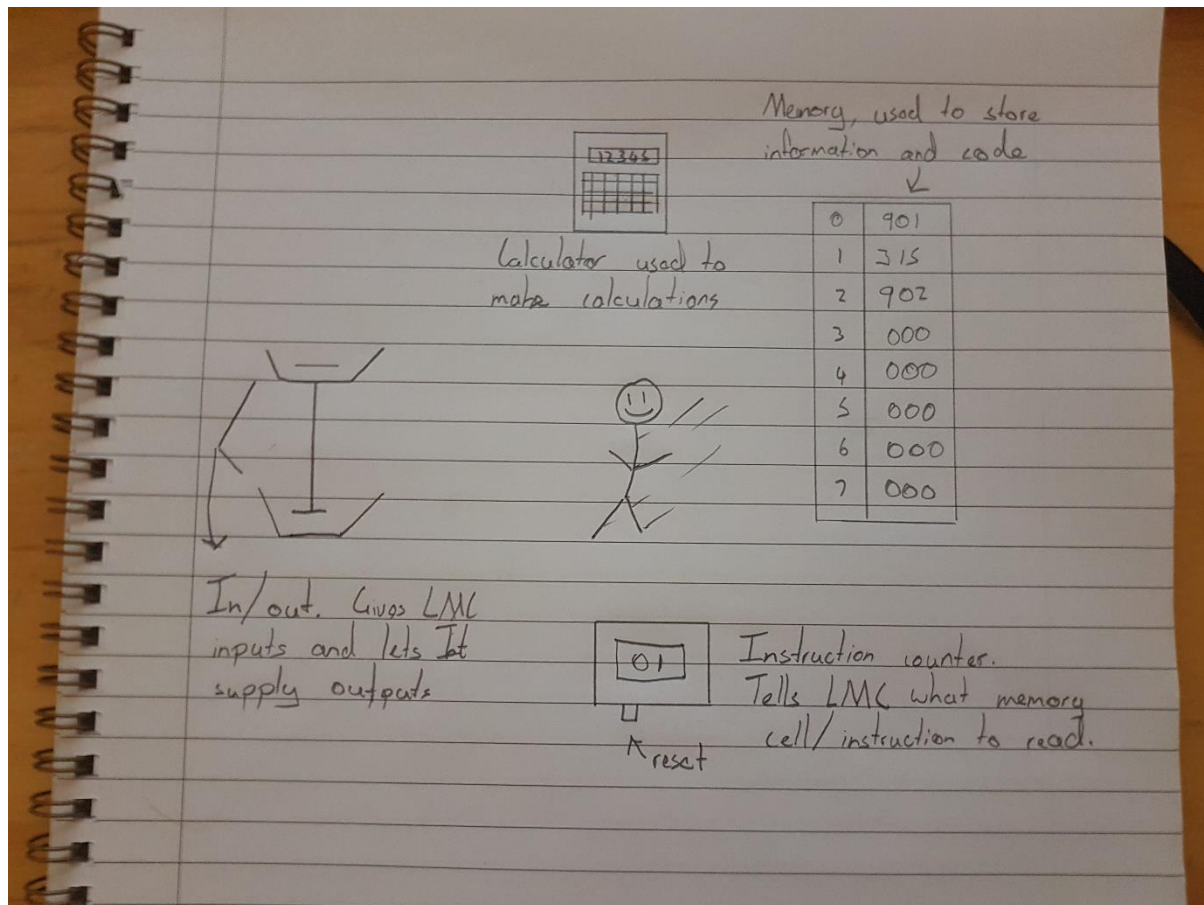 Memory, used to store
information and code
12345
Calculator used to
make calculations
0 901
1 315
2 902
3 000
4 000
5 000
6 000
7 000
In/out. Gives LMC
inputs and lets It
supply outputs
01
reset
Instruction counter.
Tells LMC what memory
cell/instruction to read.